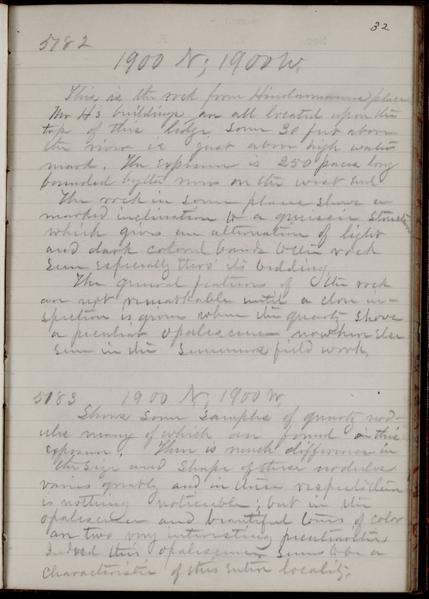 32
5782
1900 N; 1900 W.
This is the rock from place
Mr H's buildings are all located upon the
top of this ledge some 30 feet above
the river ie just above high water
mark. The exposure is 250 paces long
bounded by the river on the west end
The rock in some places shows a
marked inclination to a gneissic structure
which gives an alternation of light
and dark colored bands to the rock
seen especially thro' its bedding
The general features of the rock
are not remarkable until a close in-
spection is given when the quartz shows
a peculiar opalescence nowhere else
seen in the summers field work.
5783 1900 N, 1900 W
Shows some samples of quartz nod-
ules many of which are found in this
exposure. There is much difference in
the size and shape of these nodules
varies greatly and in these respects there
is nothing noticeable, but in the
opalescence and beautiful tones of color
are two very interesting peculiarities
Indeed this opalescence seems to be a
characteristic of this entire locality.